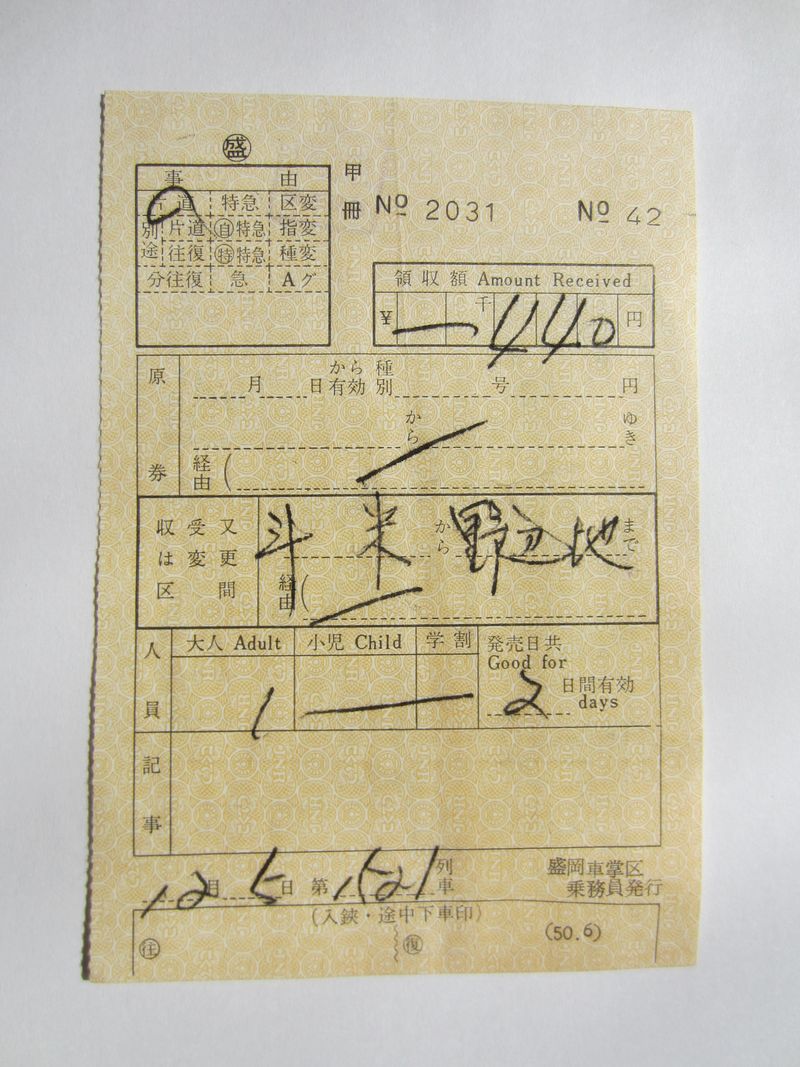 盛
事 由
甲 冊 № 2031 № 42
片道 特急 区変
別途 片道 自特急 指変
往復 特特急 種変
分往復 急 Aグ
領収額 Amount Received
¥ — 千 440 円
原券
月 日から有効 種別 号 円
から ゆき
経由(
収受又は変更区間
斗米 から 野辺地 まで
経由(
人員 大人 Adult 小児 Child 学割 発売日共
Good for
1 2 日間有効
days
記事
12月5日 第1521列車 盛岡車掌区
乗務員発行
(入鋏・途中下車印)
往 復 (50.6)